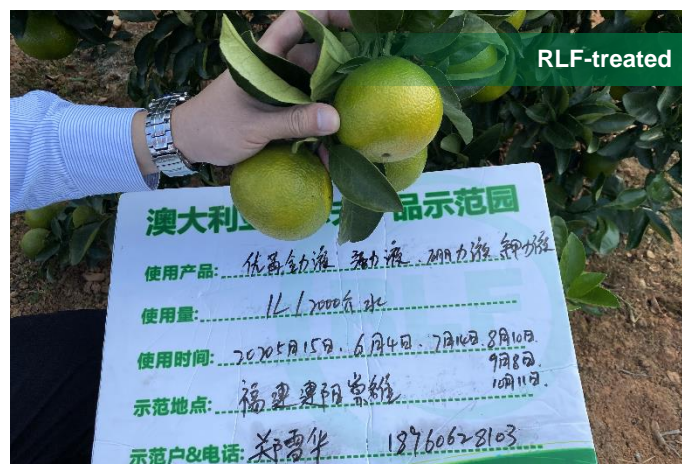 RLF-treated
澳大利 品示范园
使用产品: 优苗全力液 力液 硼力液 钾力液
使用量: 1L/2000斤水
使用时间: 2020 5月15日、6月4日、7月14日 8月10日.
9月8日.
10月11日.
示范地点: 福建
示范户&电话: 郑雪华 18960628103